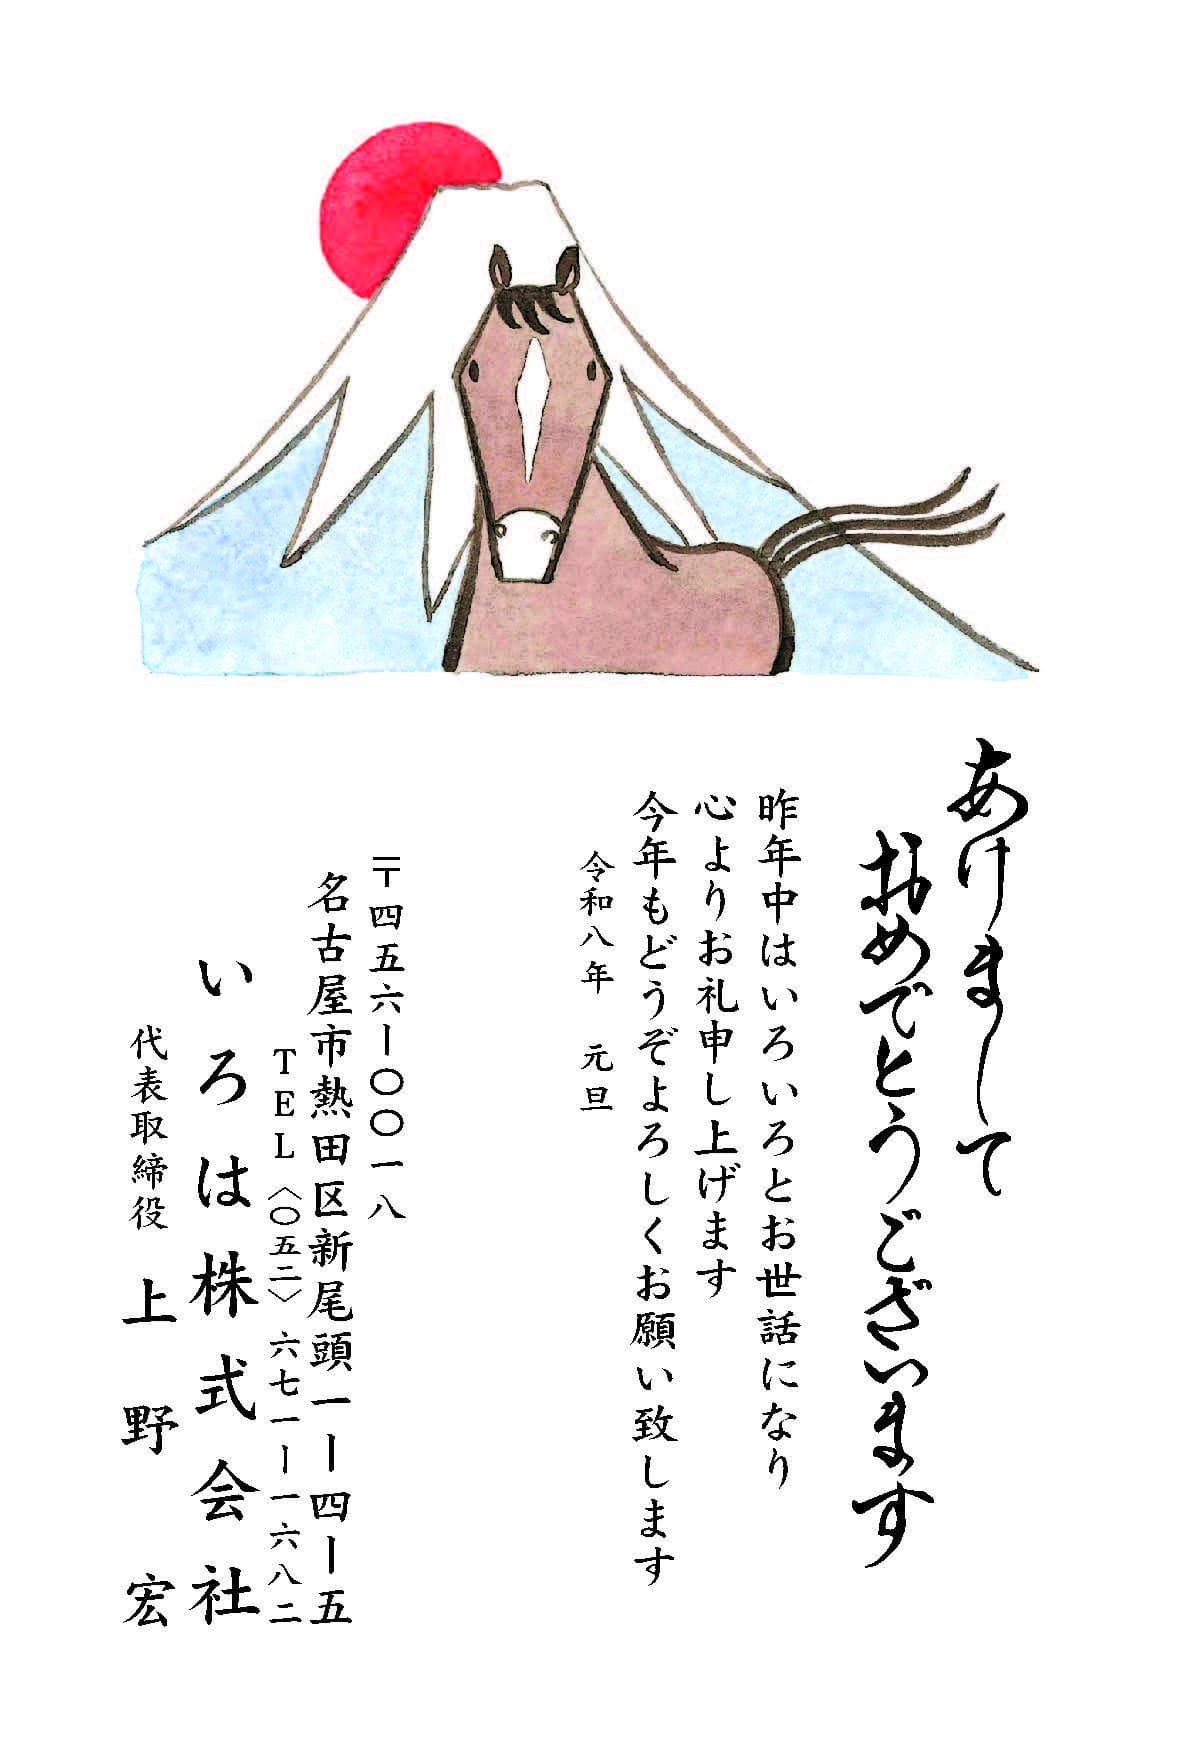 あけまして
おめでとうございます
昨年中はいろいろとお世話になり
心よりお礼申し上げます
今年もどうぞよろしくお願い致します
令和八年　元旦
〒四五六ー〇〇一八
名古屋市熱田区新尾頭一ー四ー五
TEL〈〇五二〉六七一ー一六八二
いろは株式会社
代表取締役　上野　宏